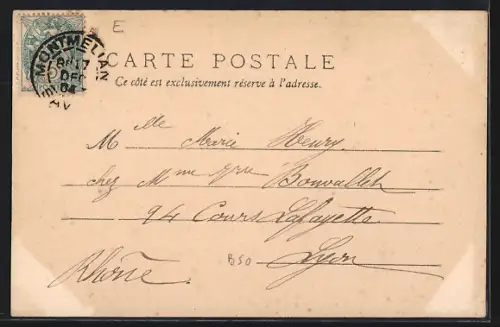 E
CARTE POSTALE
Ce côté est exclusivement réservé à l'adresse.
MONTMELIAN
DEC
04
Mlle Marie Henry
chez Mme Bonvallet
94 Cours Lafayette
Lyon
Rhône.
B50